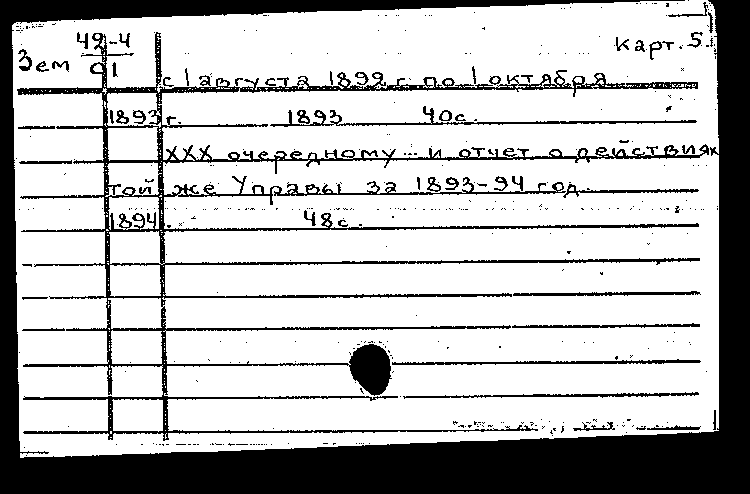 42-4
Карт. 5.
Зем 01
с 1 августа 1892 г. по 1 октября
1893 г. 1893 40с.
XXX очередному ... и отчет о действиях
той же Управы за 1893-94 год.
1894. 48с.